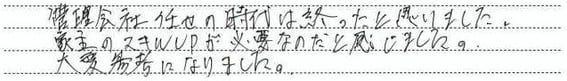 管理会社任せの時代は終ったと思いました。
家主のスキルUPが必要なのだと感じました。
大変参考になりました。